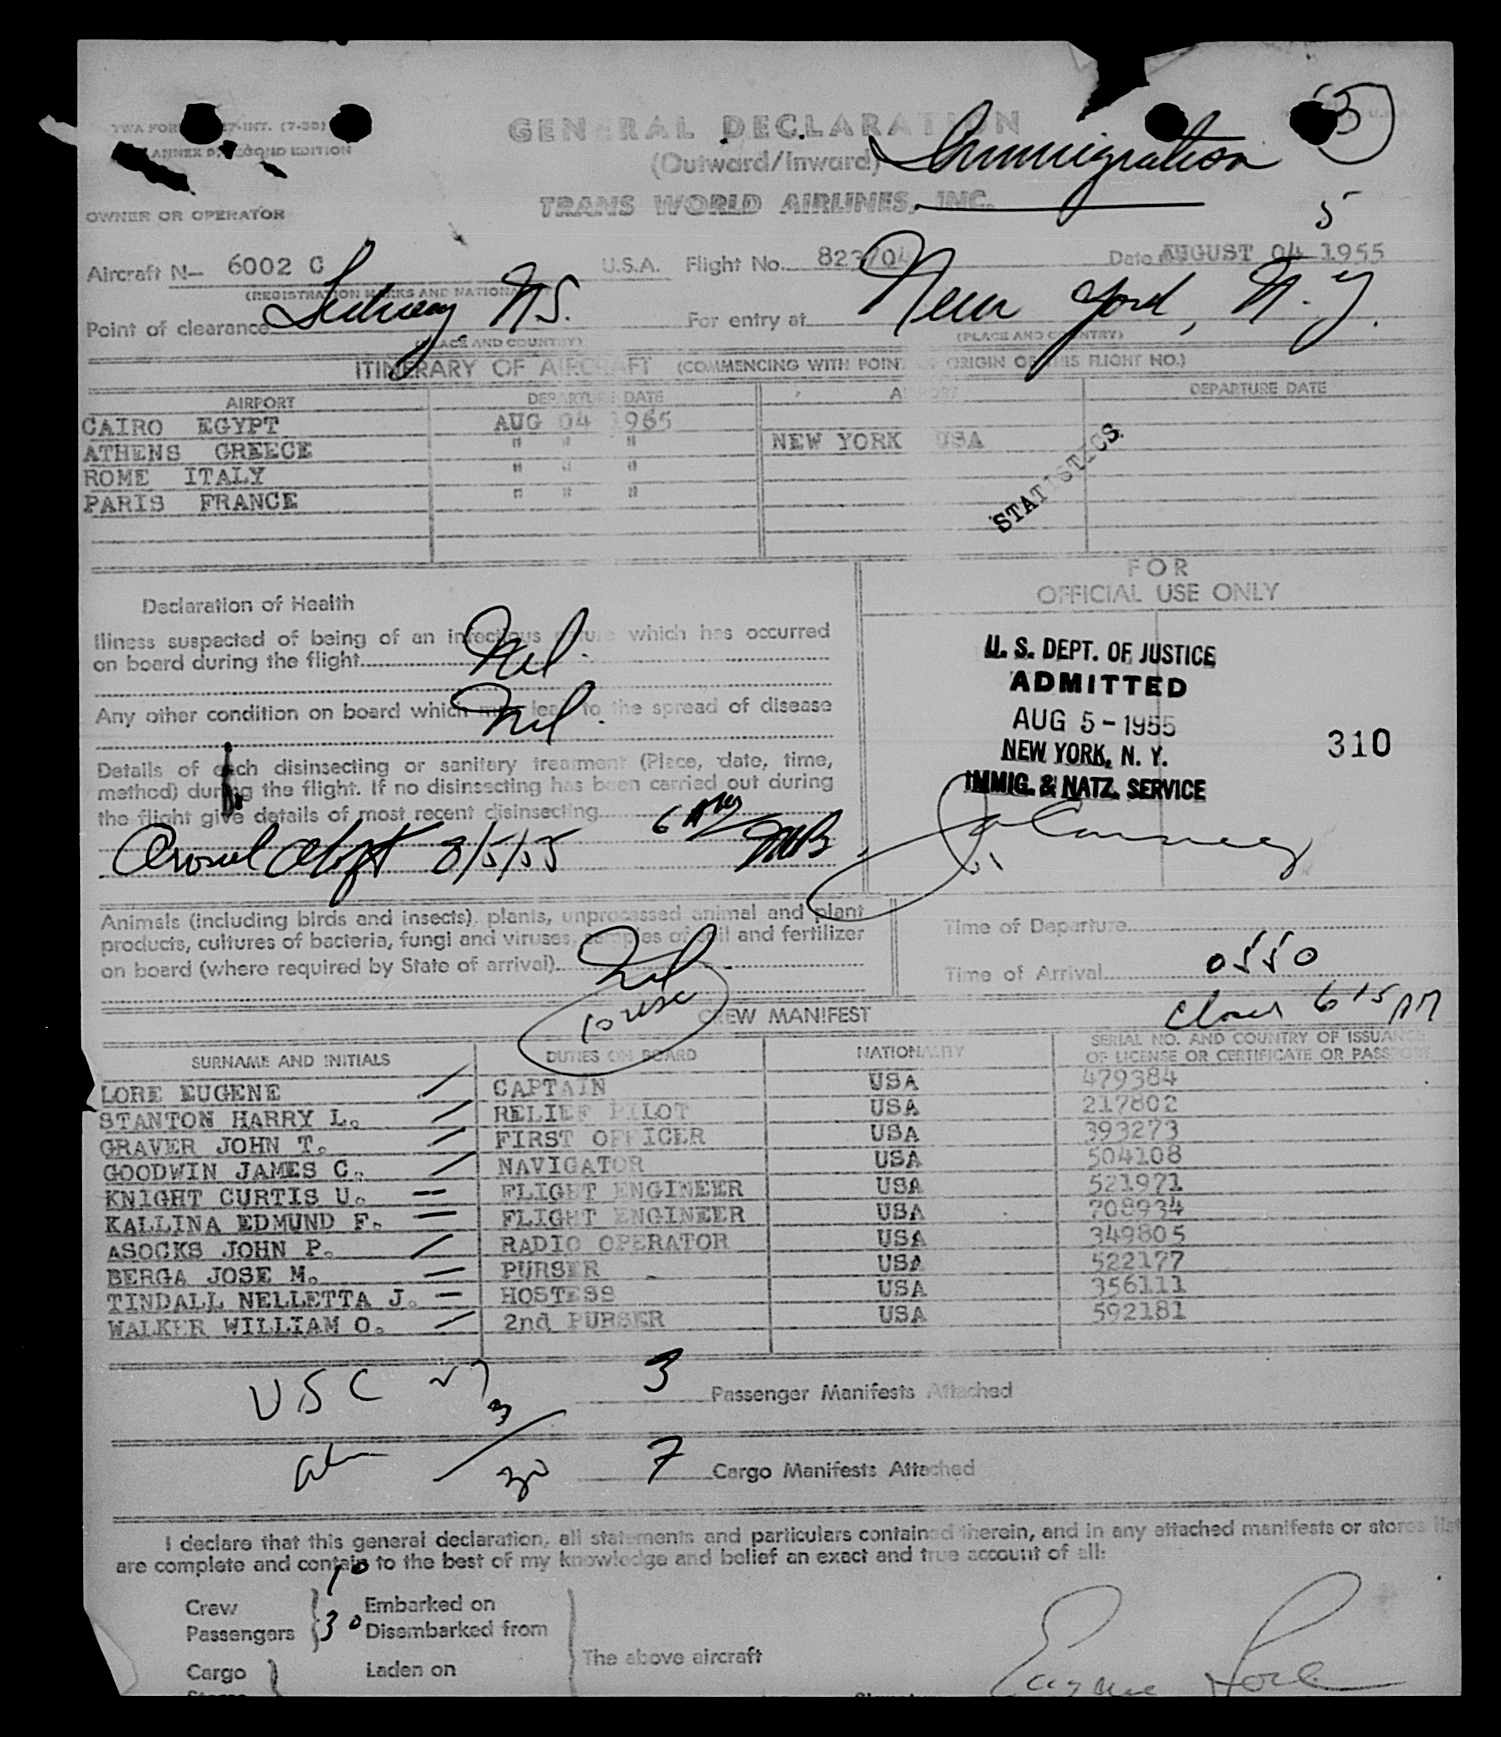 GENERAL DECLARATION
(Outward/Inward) Immigration
TRANS WORLD AIRLINES, INC.
OWNER OR OPERATOR
5
Aircraft N— 6002 C U.S.A. Flight No. Date AUGUST 04 1955
(REGISTRATION MARKS AND NATIONALITY)
Point of clearance Sidney, NS. For entry at New York, N.Y.
(PLACE AND COUNTRY) (PLACE AND COUNTRY)
ITINERARY OF AIRCRAFT (COMMENCING WITH POINT OF ORIGIN OF THIS FLIGHT NO.)
AIRPORT DEPARTURE DATE AIRPORT DEPARTURE DATE
CAIRO EGYPT AUG 04 1955
ATHENS GREECE " " " NEW YORK USA
ROME ITALY " " "
PARIS FRANCE " " "
STATISTICS
FOR
OFFICIAL USE ONLY
Declaration of Health
Illness suspected of being of an infectious nature which has occurred
on board during the flight Nil.
Any other condition on board which may lead to the spread of disease
Nil.
Details of each disinsecting or sanitary treatment (Place, date, time,
method) during the flight. If no disinsecting has been carried out during
the flight give details of most recent disinsecting
8/5/55
U. S. DEPT. OF JUSTICE
ADMITTED
AUG 5 - 1955
NEW YORK, N. Y.
IMMIG. & NATZ. SERVICE
310
Animals (including birds and insects), plants, unprocessed animal and plant
products, cultures of bacteria, fungi and viruses, samples of soil and fertilizer
on board (where required by State of arrival) Nil
10 usc
Time of Departure
Time of Arrival 0550
615 AM
CREW MANIFEST
SURNAME AND INITIALS DUTIES ON BOARD NATIONALITY SERIAL NO. AND COUNTRY OF ISSUANCE
OF LICENSE OR CERTIFICATE OR PASSPORT
LORE EUGENE CAPTAIN USA 479384
STANTON HARRY L. RELIEF PILOT USA 217802
GRAVER JOHN T. FIRST OFFICER USA 393273
GOODWIN JAMES C. NAVIGATOR USA 504108
KNIGHT CURTIS U. FLIGHT ENGINEER USA 521971
KALLINA EDMUND F. FLIGHT ENGINEER USA 708934
ASOCKS JOHN P. RADIO OPERATOR USA 349805
BERGA JOSE M. PURSER USA 522177
TINDALL NELLETTA J. HOSTESS USA 356111
WALKER WILLIAM O. 2nd PURSER USA 592181
USC 27 3 Passenger Manifests Attached
3
30 7 Cargo Manifests Attached
I declare that this general declaration, all statements and particulars contained therein, and in any attached manifests or stores list
are complete and contain to the best of my knowledge and belief an exact and true account of all:
Crew 10 Embarked on
Passengers 30 Disembarked from
The above aircraft
Cargo Laden on
Eugene Lore